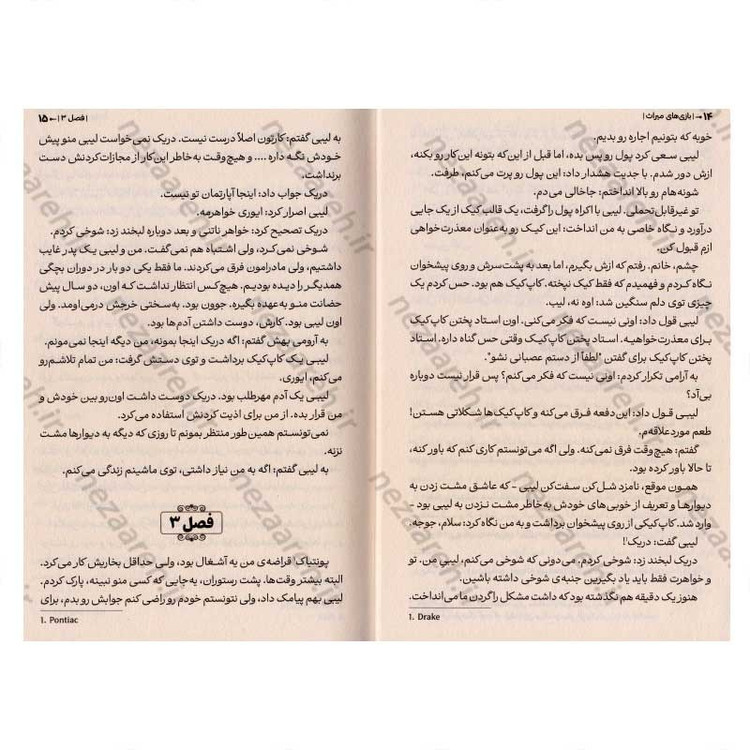 ۱۴ → | بازی‌های میراث |
خوبه که بتونیم اجاره رو بدیم.
لیبی سعی کرد پول رو پس بده، اما قبل از این‌که بتونه این‌کار رو بکنه،
ازش دور شدم. با جدیت هشدار داد: این پول رو پرت می‌کنم، طرفت.
شونه‌هام رو بالا انداختم: جاخالی می‌دم.
تو غیرقابل‌تحملی. لیبی با اکراه پول را گرفت، یک قالب کیک از یک جایی
درآورد و نگاه خاصی به من انداخت: این کیک رو به‌عنوان معذرت‌خواهی
ازم قبول کن.
چشم، خانم. رفتم که ازش بگیرم، اما بعد به پشت‌سرش و روی پیشخوان
نگاه کردم و فهمیدم که فقط کیک نپخته. کاپ‌کیک هم بود. حس کردم یک
چیزی توی دلم سنگین شد: اوه نه، لیب.
لیبی قول داد: اونی نیست که فکر می‌کنی. اون استاد پختن کاپ‌کیک
برای معذرت‌خواهیه. استاد پختن کاپ‌کیک وقتی حس گناه داره. استاد
پختن کاپ‌کیک برای گفتن "لطفاً از دستم عصبانی نشو".
به آرامی تکرار کردم: اونی نیست که فکر می‌کنم؟ پس قرار نیست دوباره
بی‌آد؟
لیبی قول داد: این‌دفعه فرق می‌کنه و کاپ‌کیک‌ها شکلاتی هستن!
طعم موردعلاقه‌م.
گفتم: هیچ‌وقت فرق نمی‌کنه. ولی اگه می‌تونستم کاری کنم که باور کنه،
تا حالا باور کرده بود.
همون موقع، نامزد شل‌کن سفت‌کن لیبی - که عاشق مشت زدن به
دیوارها و تعریف از خوبی‌های خودش به‌خاطر مشت نزدن به لیبی بود -
وارد شد. کاپ‌کیکی از روی پیشخوان برداشت و به من نگاه کرد: سلام، جوجه.
لیبی گفت: دریک¹!
دریک لبخند زد: شوخی کردم. می‌دونی که شوخی می‌کنم، لیبیِ من. تو
و خواهرت فقط باید یاد بگیرین جنبه‌ی شوخی داشته باشین.
هنوز یک دقیقه هم نگذشته بود که داشت مشکل را گردن ما می‌انداخت.
1. Drake
| فصل ۳ | ← ۱۵
به لیبی گفتم: کارتون اصلاً درست نیست. دریک نمی‌خواست لیبی منو پیش
خودش نگه داره .... و هیچ‌وقت به‌خاطر این‌کار از مجازات‌کردنش دست
برنداشت.
دریک جواب داد: اینجا آپارتمان تو نیست.
لیبی اصرار کرد: ایوری خواهرمه.
دریک تصحیح کرد: خواهر ناتنی و بعد دوباره لبخند زد: شوخی کردم.
شوخی نمی‌کرد، ولی اشتباه هم نمی‌گفت. من و لیبی یک پدر غایب
داشتیم، ولی مادرامون فرق می‌کردند. ما فقط یکی دو بار در دوران بچگی
همدیگر را دیده بودیم. هیچ‌کس انتظار نداشت که اون، دو سال پیش
حضانت منو به‌عهده بگیره. جوون بود. به‌سختی خرجش درمی‌اومد. ولی
اون لیبی بود. کارش، دوست داشتن آدم‌ها بود.
به آرومی بهش گفتم: اگه دریک اینجا بمونه، من دیگه اینجا نمی‌مونم.
لیبی یک کاپ‌کیک برداشت و توی دستش گرفت: من تمام تلاشم‌رو
می‌کنم، ایوری.
لیبی یک آدم مهرطلب بود. دریک دوست داشت اون‌رو بین خودش و
من قرار بده. از من برای اذیت کردنش استفاده می‌کرد.
نمی‌تونستم همین‌طور منتظر بمونم تا روزی که دیگه به دیوارها مشت
نزنه.
به لیبی گفتم: اگه به من نیاز داشتی، توی ماشینم زندگی می‌کنم.
فصل ۳
پونتیاک¹ قراضه‌ی من یه آشغال بود، ولی حداقل بخاریش کار می‌کرد.
البته بیشتر وقت‌ها. پشت رستوران، یه‌جایی که کسی منو نبینه، پارک کردم.
لیبی بهم پیامک داد، ولی نتونستم خودم رو راضی کنم جوابش رو بدم، برای
1. Pontiac
nezaareh.ir